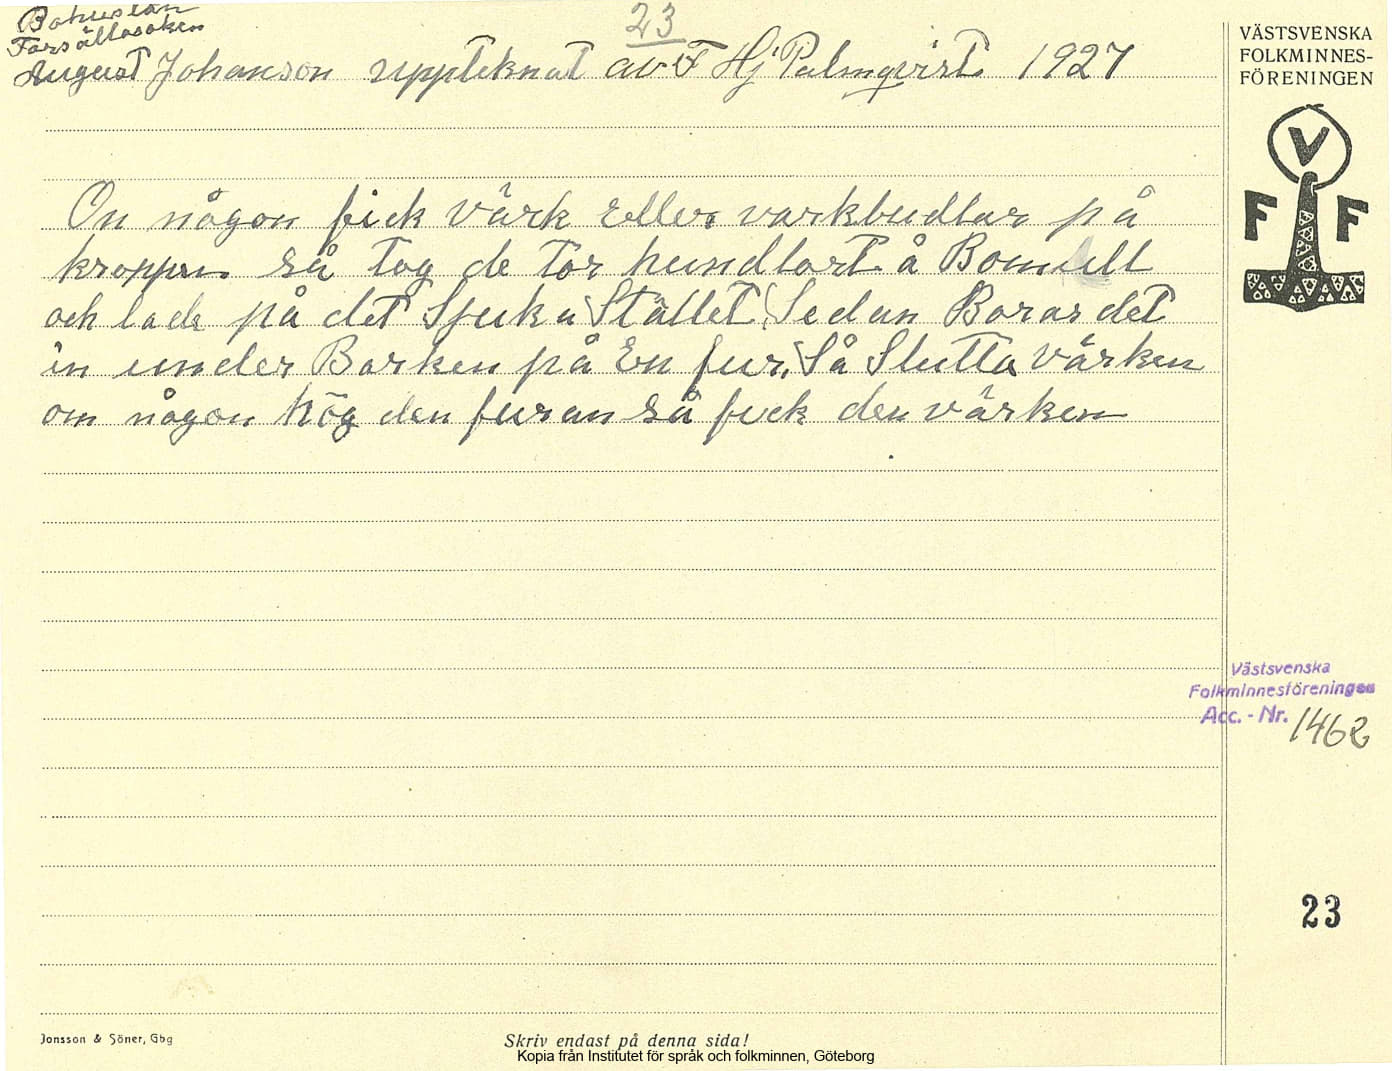 Bohuslän
Forsällasoken
23
August Johanson uppteknat av F Hj Palmqvist 1927
VÄSTSVENSKA
FOLKMINNES-
FÖRENINGEN
V
F F
On någon fick värk eller varkbudlar på
kroppen så tog de tor hundlort å Bomull
och lade på det Sjuka Stället, Sedan Borar det
in under Barken på En fur, Så Slutta värken
om någon hög den furan så fick den värken
Västsvenska
Folkminnesföreningen
Acc.-Nr. 1462
23
Jonsson & Söner, Gbg
Skriv endast på denna sida!
Kopia från Institutet för språk och folkminnen, Göteborg